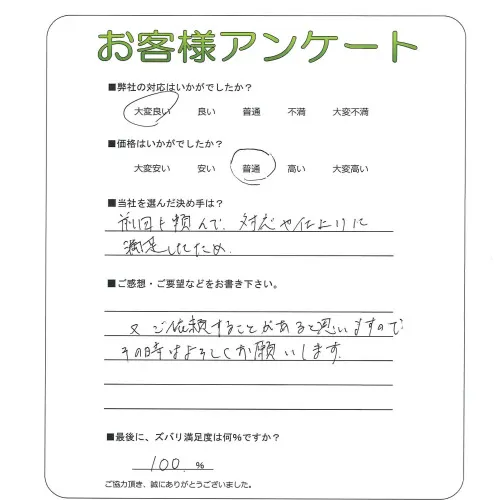 お客様アンケート
■弊社の対応はいかがでしたか？
大変良い 良い 普通 不満 大変不満
■価格はいかがでしたか？
大変安い 安い 普通 高い 大変高い
■当社を選んだ決め手は？
前回も頼んで、対応や仕上りに
満足したため
■ご感想・ご要望などをお書き下さい。
又ご依頼することがあると思いますので
その時はよろしくお願いします。
■最後に、ズバリ満足度は何％ですか？
100. ％
ご協力頂き、誠にありがとうございました。